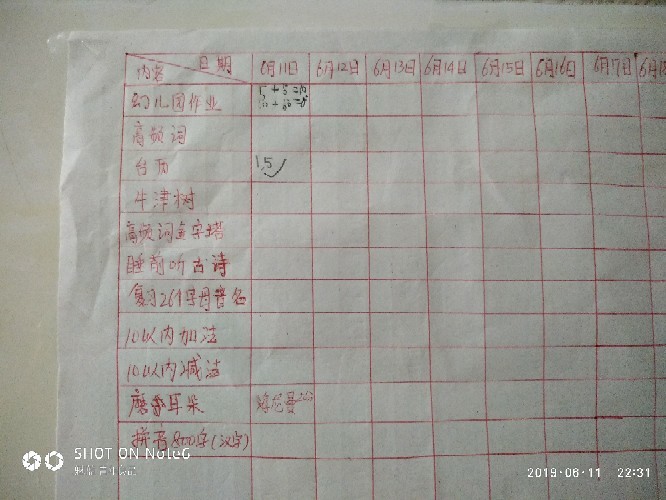 日期 内容 6月11日 6月12日 6月13日 6月14日 6月15日 6月16日 6月17日 6月18
幼儿园作业 5+5=10
高频词
台历 15
牛津树
高频词金字塔
睡前听古诗
复习26个字母
10以内加法
10以内减法
磨耳朵
拼音800字(汉字)
SHOT ON Note6
2019-06-11 22:31